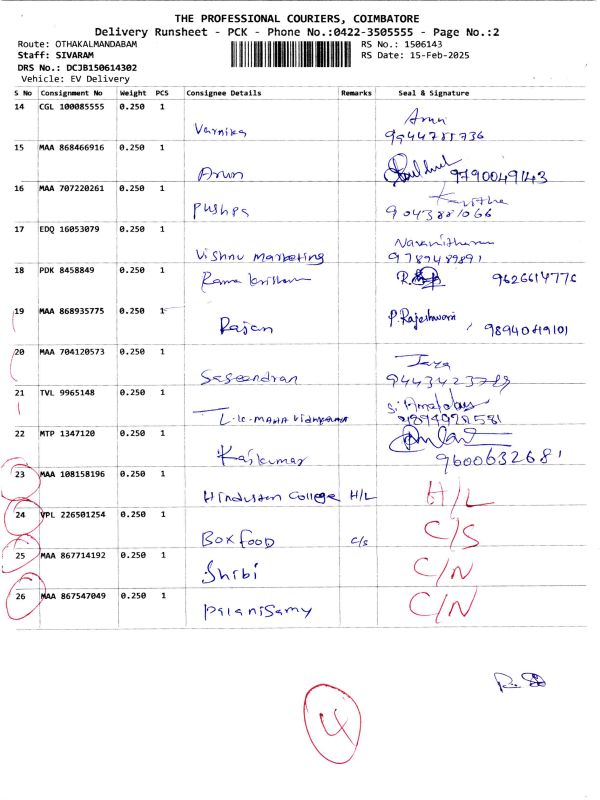 THE PROFESSIONAL COURIERS, COIMBATORE
Delivery Runsheet - PCK - Phone No.:0422-3505555 - Page No.:2
Route: OTHAKALMANDABAM RS No.: 1506143
Staff: SIVARAM RS Date: 15-Feb-2025
DRS No.: DCJB150614302
Vehicle: EV Delivery
S No Consignment No Weight PCS Consignee Details Remarks Seal & Signature
14 CGL 100085555 0.250 1 Varnika Arun
15 MAA 868466916 0.250 1 Arun 9790049143
16 MAA 707220261 0.250 1 Pushpa Kavitha
9043881066
17 EDQ 16053079 0.250 1 Vishnu Marketing
9789489891
18 PDK 8458849 0.250 1 Rama krishnan 9626614776
19 MAA 868935775 0.250 1 Rajan P. Rajeshwari
20 MAA 704120573 0.250 1 Saseendran Jaya
21 TVL 9965148 0.250 1
22 MTP 1347120 0.250 1 Rajkumar
9600632681
23 MAA 108158196 0.250 1 Hindustan College H/L H/L
24 VPL 226501254 0.250 1 BOX FOOD C/S C/S
25 MAA 867714192 0.250 1 Shibi C/N
26 MAA 867547049 0.250 1 Palanisamy C/N
4